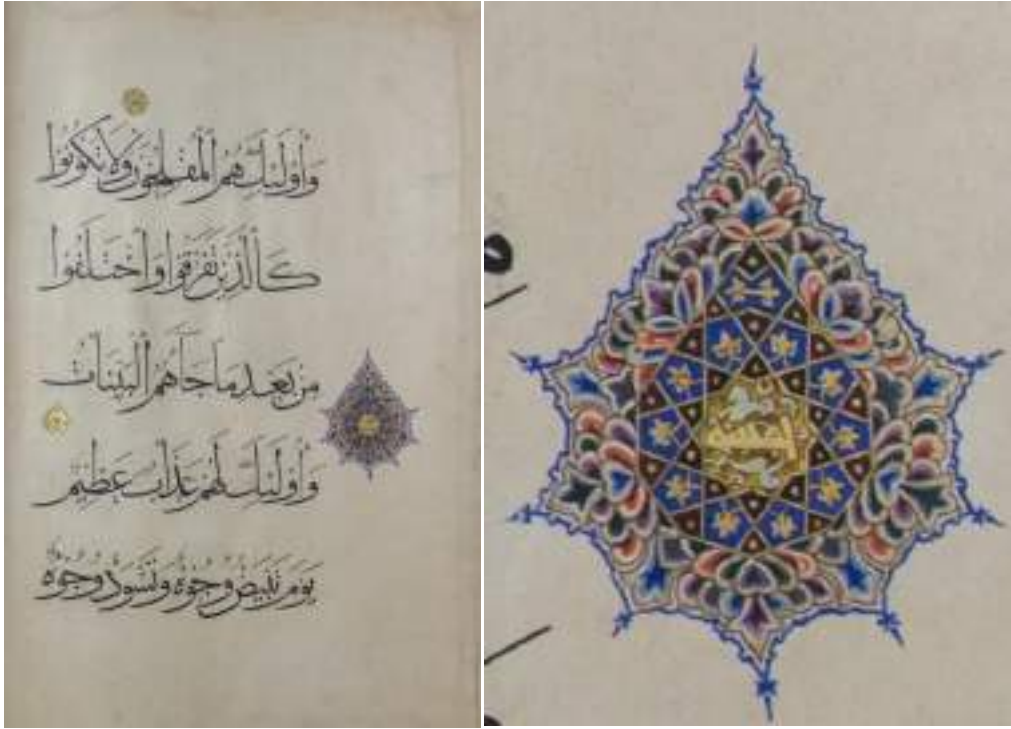 وَأُولَٰئِكَ هُمُ الْمُفْلِحُونَ وَلَا تَكُونُوا
كَالَّذِينَ تَفَرَّقُوا وَاخْتَلَفُوا
مِنْ بَعْدِ مَا جَاءَهُمُ الْبَيِّنَاتُ
وَأُولَٰئِكَ لَهُمْ عَذَابٌ عَظِيمٌ
يَوْمَ تَبْيَضُّ وُجُوهٌ وَتَسْوَدُّ وُجُوهٌ